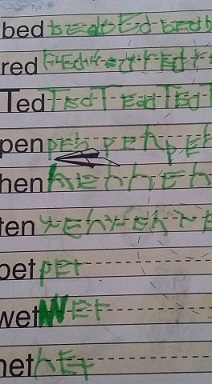 bed bEd bEd
red Ed Ed
Ted TEd T Ed TEd
pen pEn pEn pE
hen hEn hEn
ten tEn tEn tE
pet pEt
wet WEt
net nEt